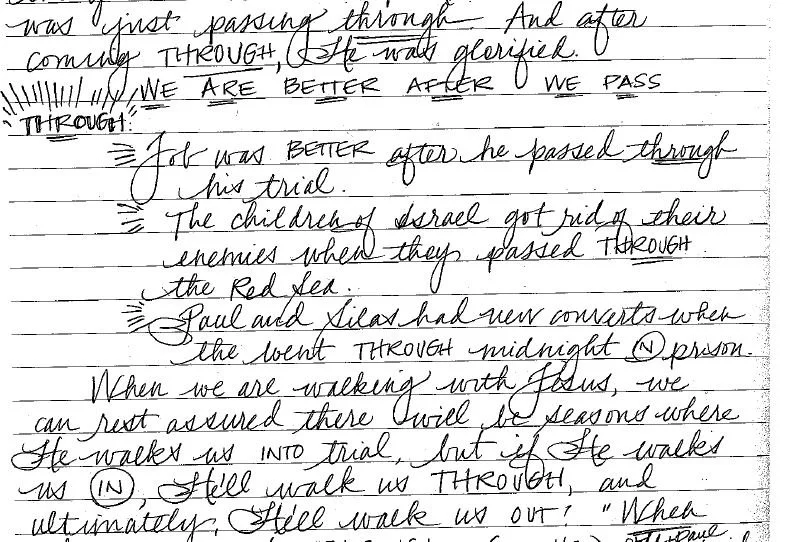 was just passing through. And after
coming THROUGH, He was glorified.
WE ARE BETTER AFTER WE PASS
THROUGH:
Job was BETTER after he passed through
his trial.
The children of Israel got rid of their
enemies when they passed THROUGH
the Red Sea.
Paul and Silas had new converts when
the went THROUGH midnight IN prison.
When we are walking with Jesus, we
can rest assured there will be seasons where
He walks us INTO trial, but if He walks
us IN, He'll walk us THROUGH, and
ultimately, He'll walk us OUT! "When